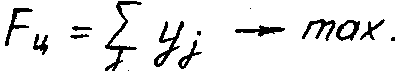 Fц = ∑j yj → max.